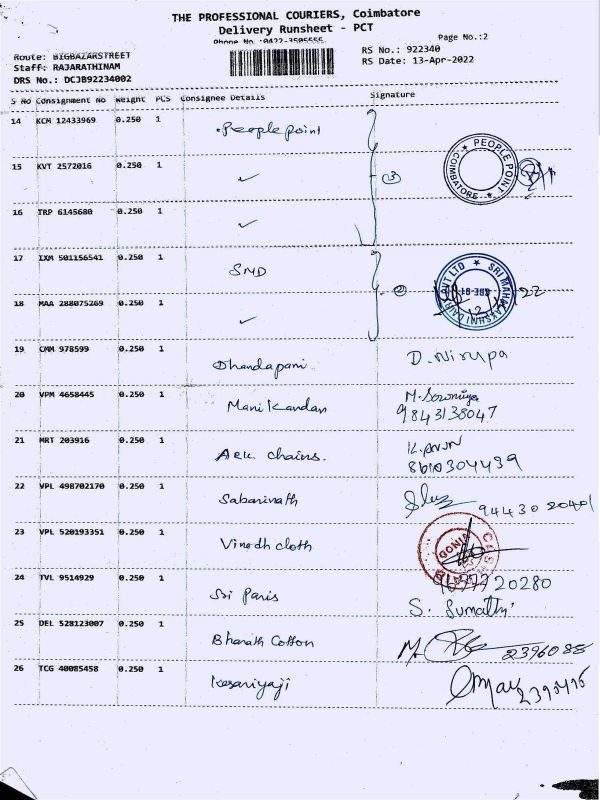 THE PROFESSIONAL COURIERS, Coimbatore
Delivery Runsheet - PCT
Phone No :0422-3505555 Page No.:2
Route: BIGBAZARSTREET RS No.: 922340
Staff: RAJARATHINAM RS Date: 13-Apr-2022
DRS No.: DCJB92234002
S No Consignment No Weight PCS Consignee Details Signature
14 KCM 12433969 0.250 1 Peoplepoint
PEOPLE POINT COIMBATORE
15 KVT 2572016 0.250 1 ✓ 3
16 TRP 6145680 0.250 1 ✓
17 IXM 501156541 0.250 1 SMD
SRI MAHALAKSHMI DAIRY PVT LTD
18 MAA 288075269 0.250 1 ✓ 2
19 CMM 978599 0.250 1 Dhandapani D. Nirupa
20 VPM 4658445 0.250 1 Manikandan M. Sowmiya
9843138047
21 MRT 203916 0.250 1 Ark chains. K. ARUN
8610304439
22 VPL 498702170 0.250 1 Sabarinath 9443020401
23 VPL 520193351 0.250 1 Vinodh cloth
24 TVL 9514929 0.250 1 Sri Paris 20280
S. Sumathi
25 DEL 528123007 0.250 1 Bharath Cotton M. 2396088
26 TCG 40085458 0.250 1 Kesariyaji